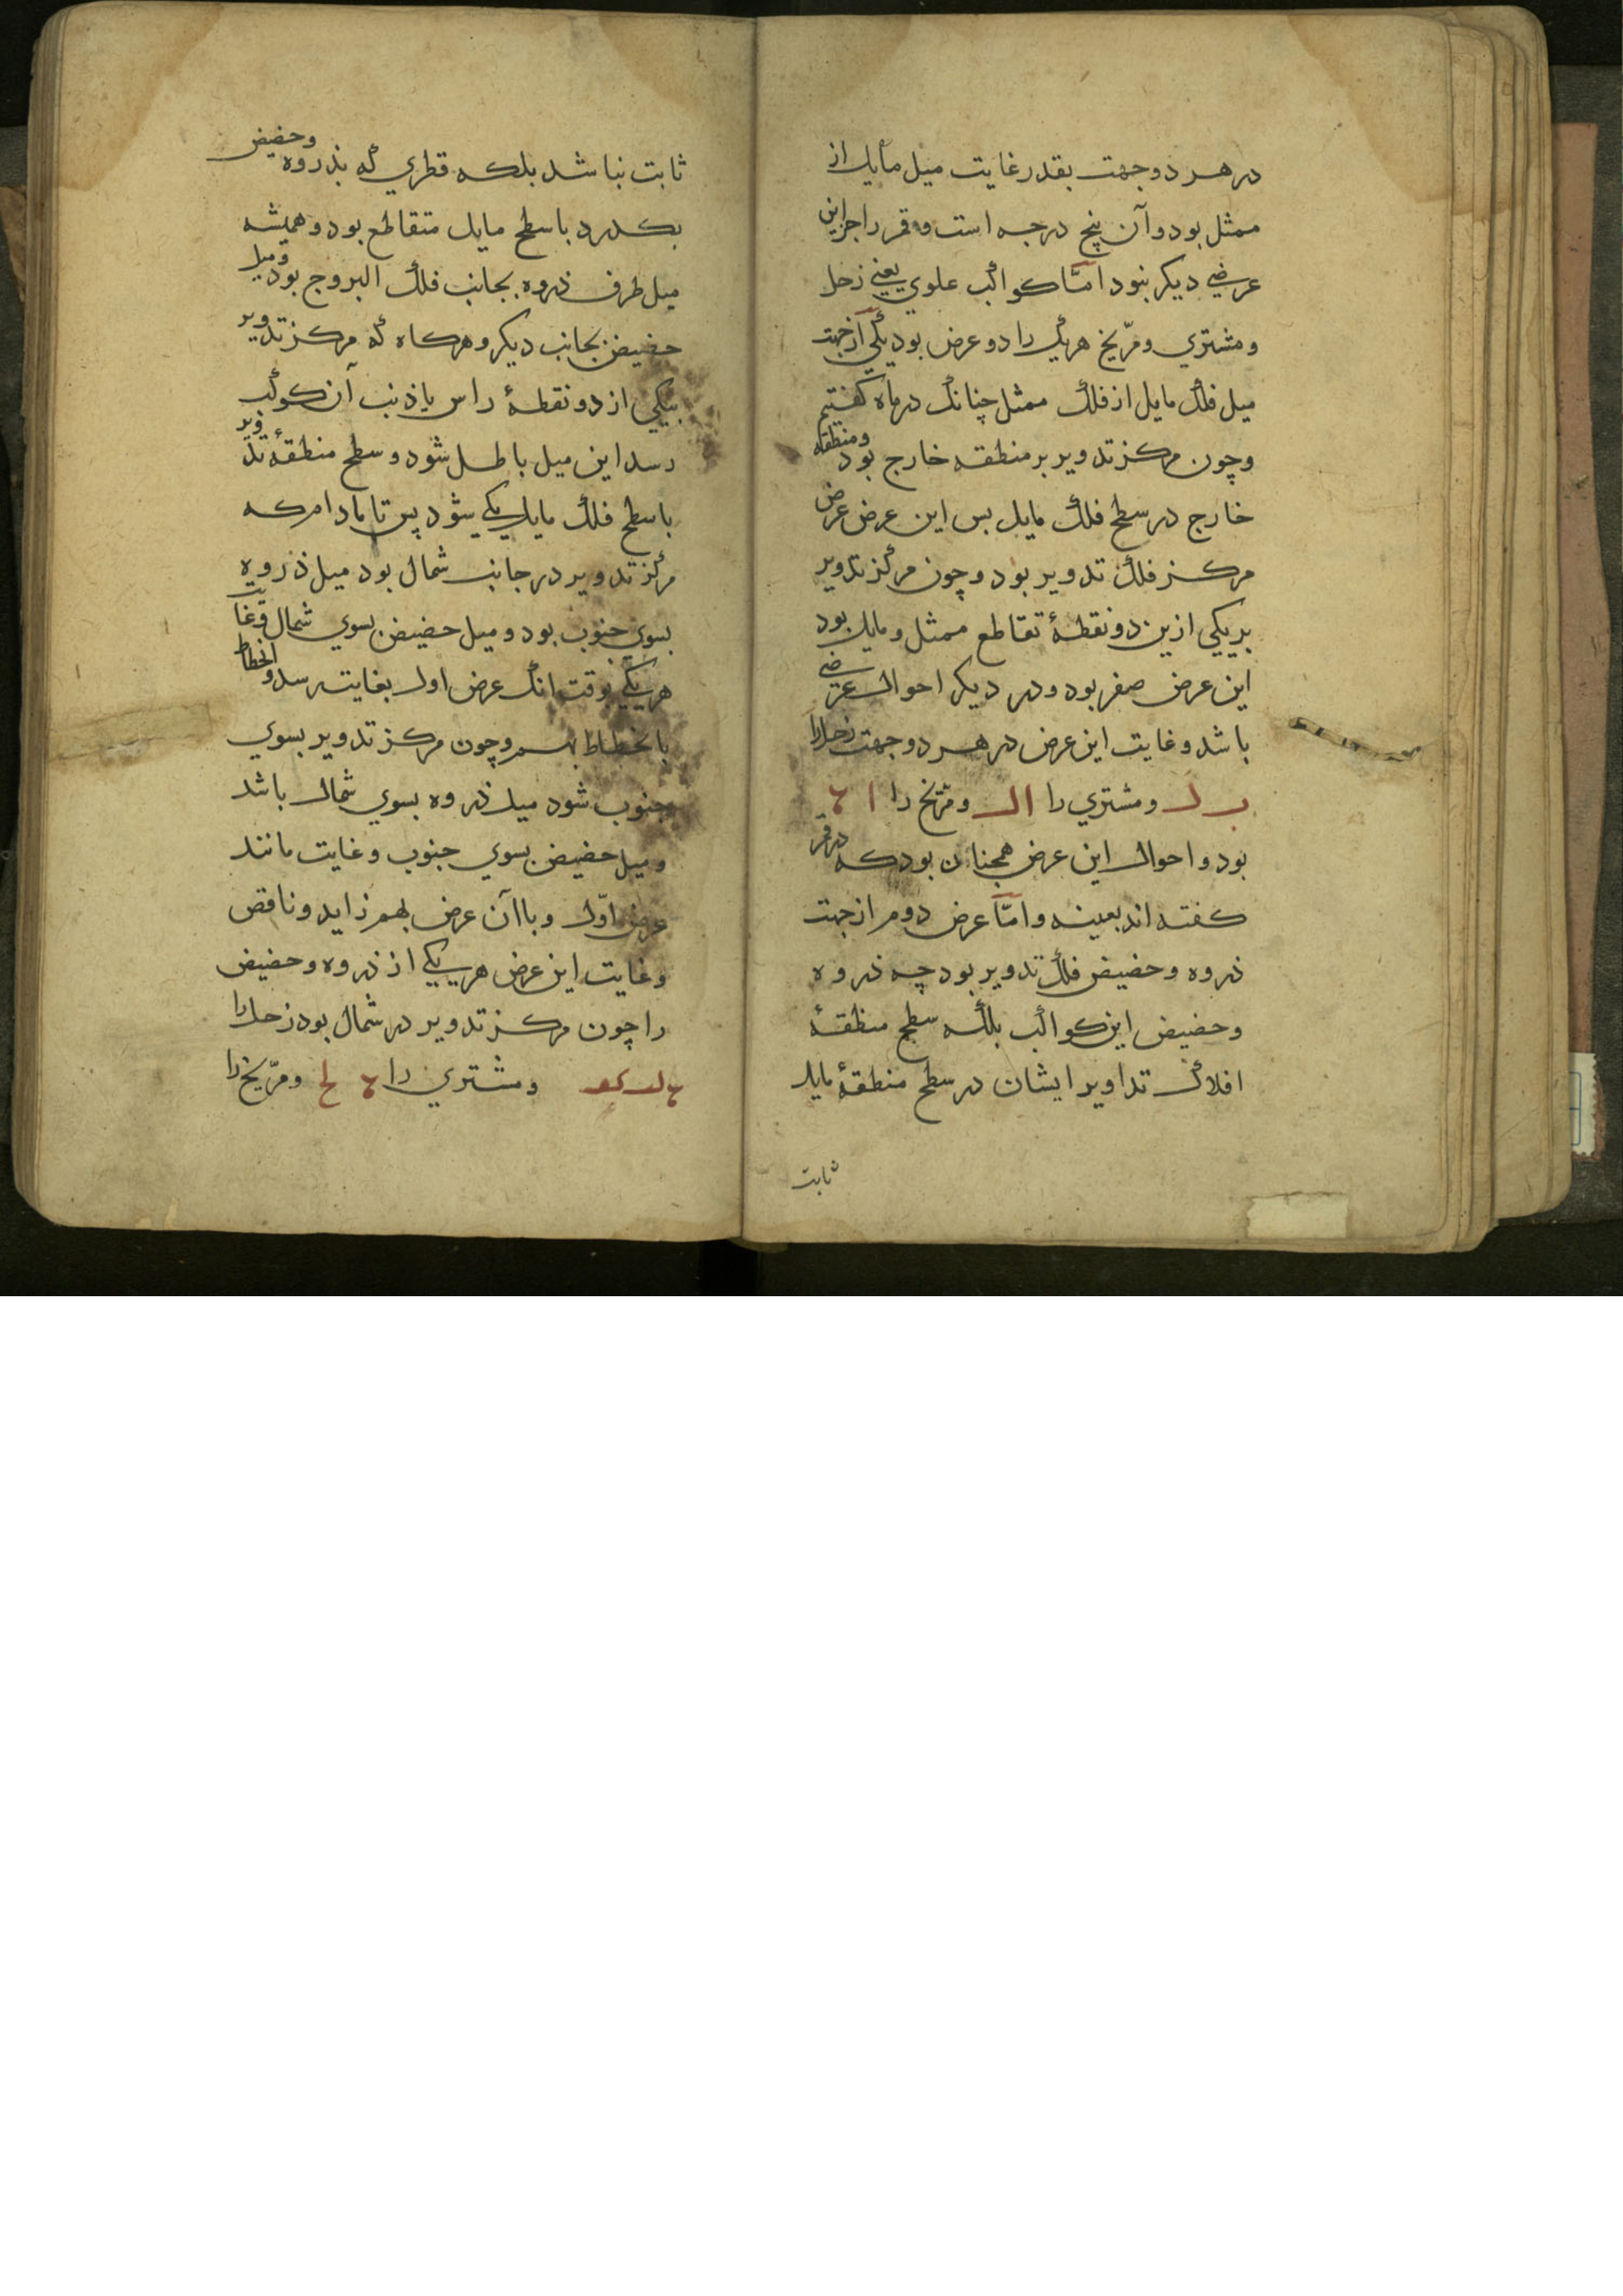 در هر دو جهت بقدر غایت میل مایل از
ممثل بود و آن پنج درجه است و قمر را جز این
عرضی دیکر نبود امّا کواکب علوی یعنی زحل
و مشتری و مرّیخ هریک را دو عرض بود یکی از جهت
میل فلک مایل از فلک ممثل چنانک در ماه کفتیم
و چون مرکز تدویر بر منطقه خارج بود و منطقه
خارج در سطح فلک مایل بس این عرض عرض
مرکز فلک تدویر بود و چون مرکز تدویر
بر یکی ازین دو نقطهٔ تقاطع ممثل و مایل بود
این عرض صفر بود و در دیکر احوال عرضی
باشد و غایت این عرض در هر دو جهت زحل را
ب ل و مشتری را ا ل و مرّیخ را ا ه
بود و احوال این عرض همچنان بود که در قمر
کفته اند بعینه و امّا عرض دوم از جهت
ذروه و حضیض فلک تدویر بود چه ذروه
و حضیض این کواکب بلکه سطح منطقهٔ
افلاک تداویر ایشان در سطح منطقهٔ مایل
ثابت
ثابت نباشد بلکه قطری که بذروه و حضیض
بکذرد با سطح مایل متقاطع بود و همیشه
میل طرف ذروه بجانب فلک البروج بود و میل
حضیض بجانب دیکر و هرکاه که مرکز تدویر
بیکی از دو نقطهٔ راس یا ذنب آن کوکب
رسد این میل باطل شود و سطح منطقهٔ تدویر
با سطح فلک مایل یکی شود پس تا مادام که
مرکز تدویر در جانب شمال بود میل ذروه
بسوی جنوب بود و میل حضیض بسوی شمال و غایت
هر یکی بوقت انک عرض اول بغایت رسد و انحطاط
با انحطاط بهم و چون مرکز تدویر بسوی
جنوب شود میل ذروه بسوی شمال باشد
و میل حضیض بسوی جنوب و غایت مانند
عرض اوّل و با آن عرض بهم زاید و ناقص
و غایت این عرض هر یکی از ذروه و حضیض
را چون مرکز تدویر در شمال بود زحل را
و مشتری را ه لح و مرّیخ را